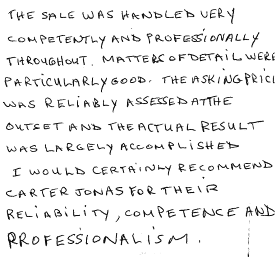 THE SALE WAS HANDLED VERY
COMPETENTLY AND PROFESSIONALLY
THROUGHOUT. MATTERS OF DETAIL WERE
PARTICULARLY GOOD. THE ASKING PRICE
WAS RELIABLY ASSESSED AT THE
OUTSET AND THE ACTUAL RESULT
WAS LARGELY ACCOMPLISHED
I WOULD CERTAINLY RECOMMEND
CARTER JONAS FOR THEIR
RELIABILITY, COMPETENCE AND
PROFESSIONALISM.